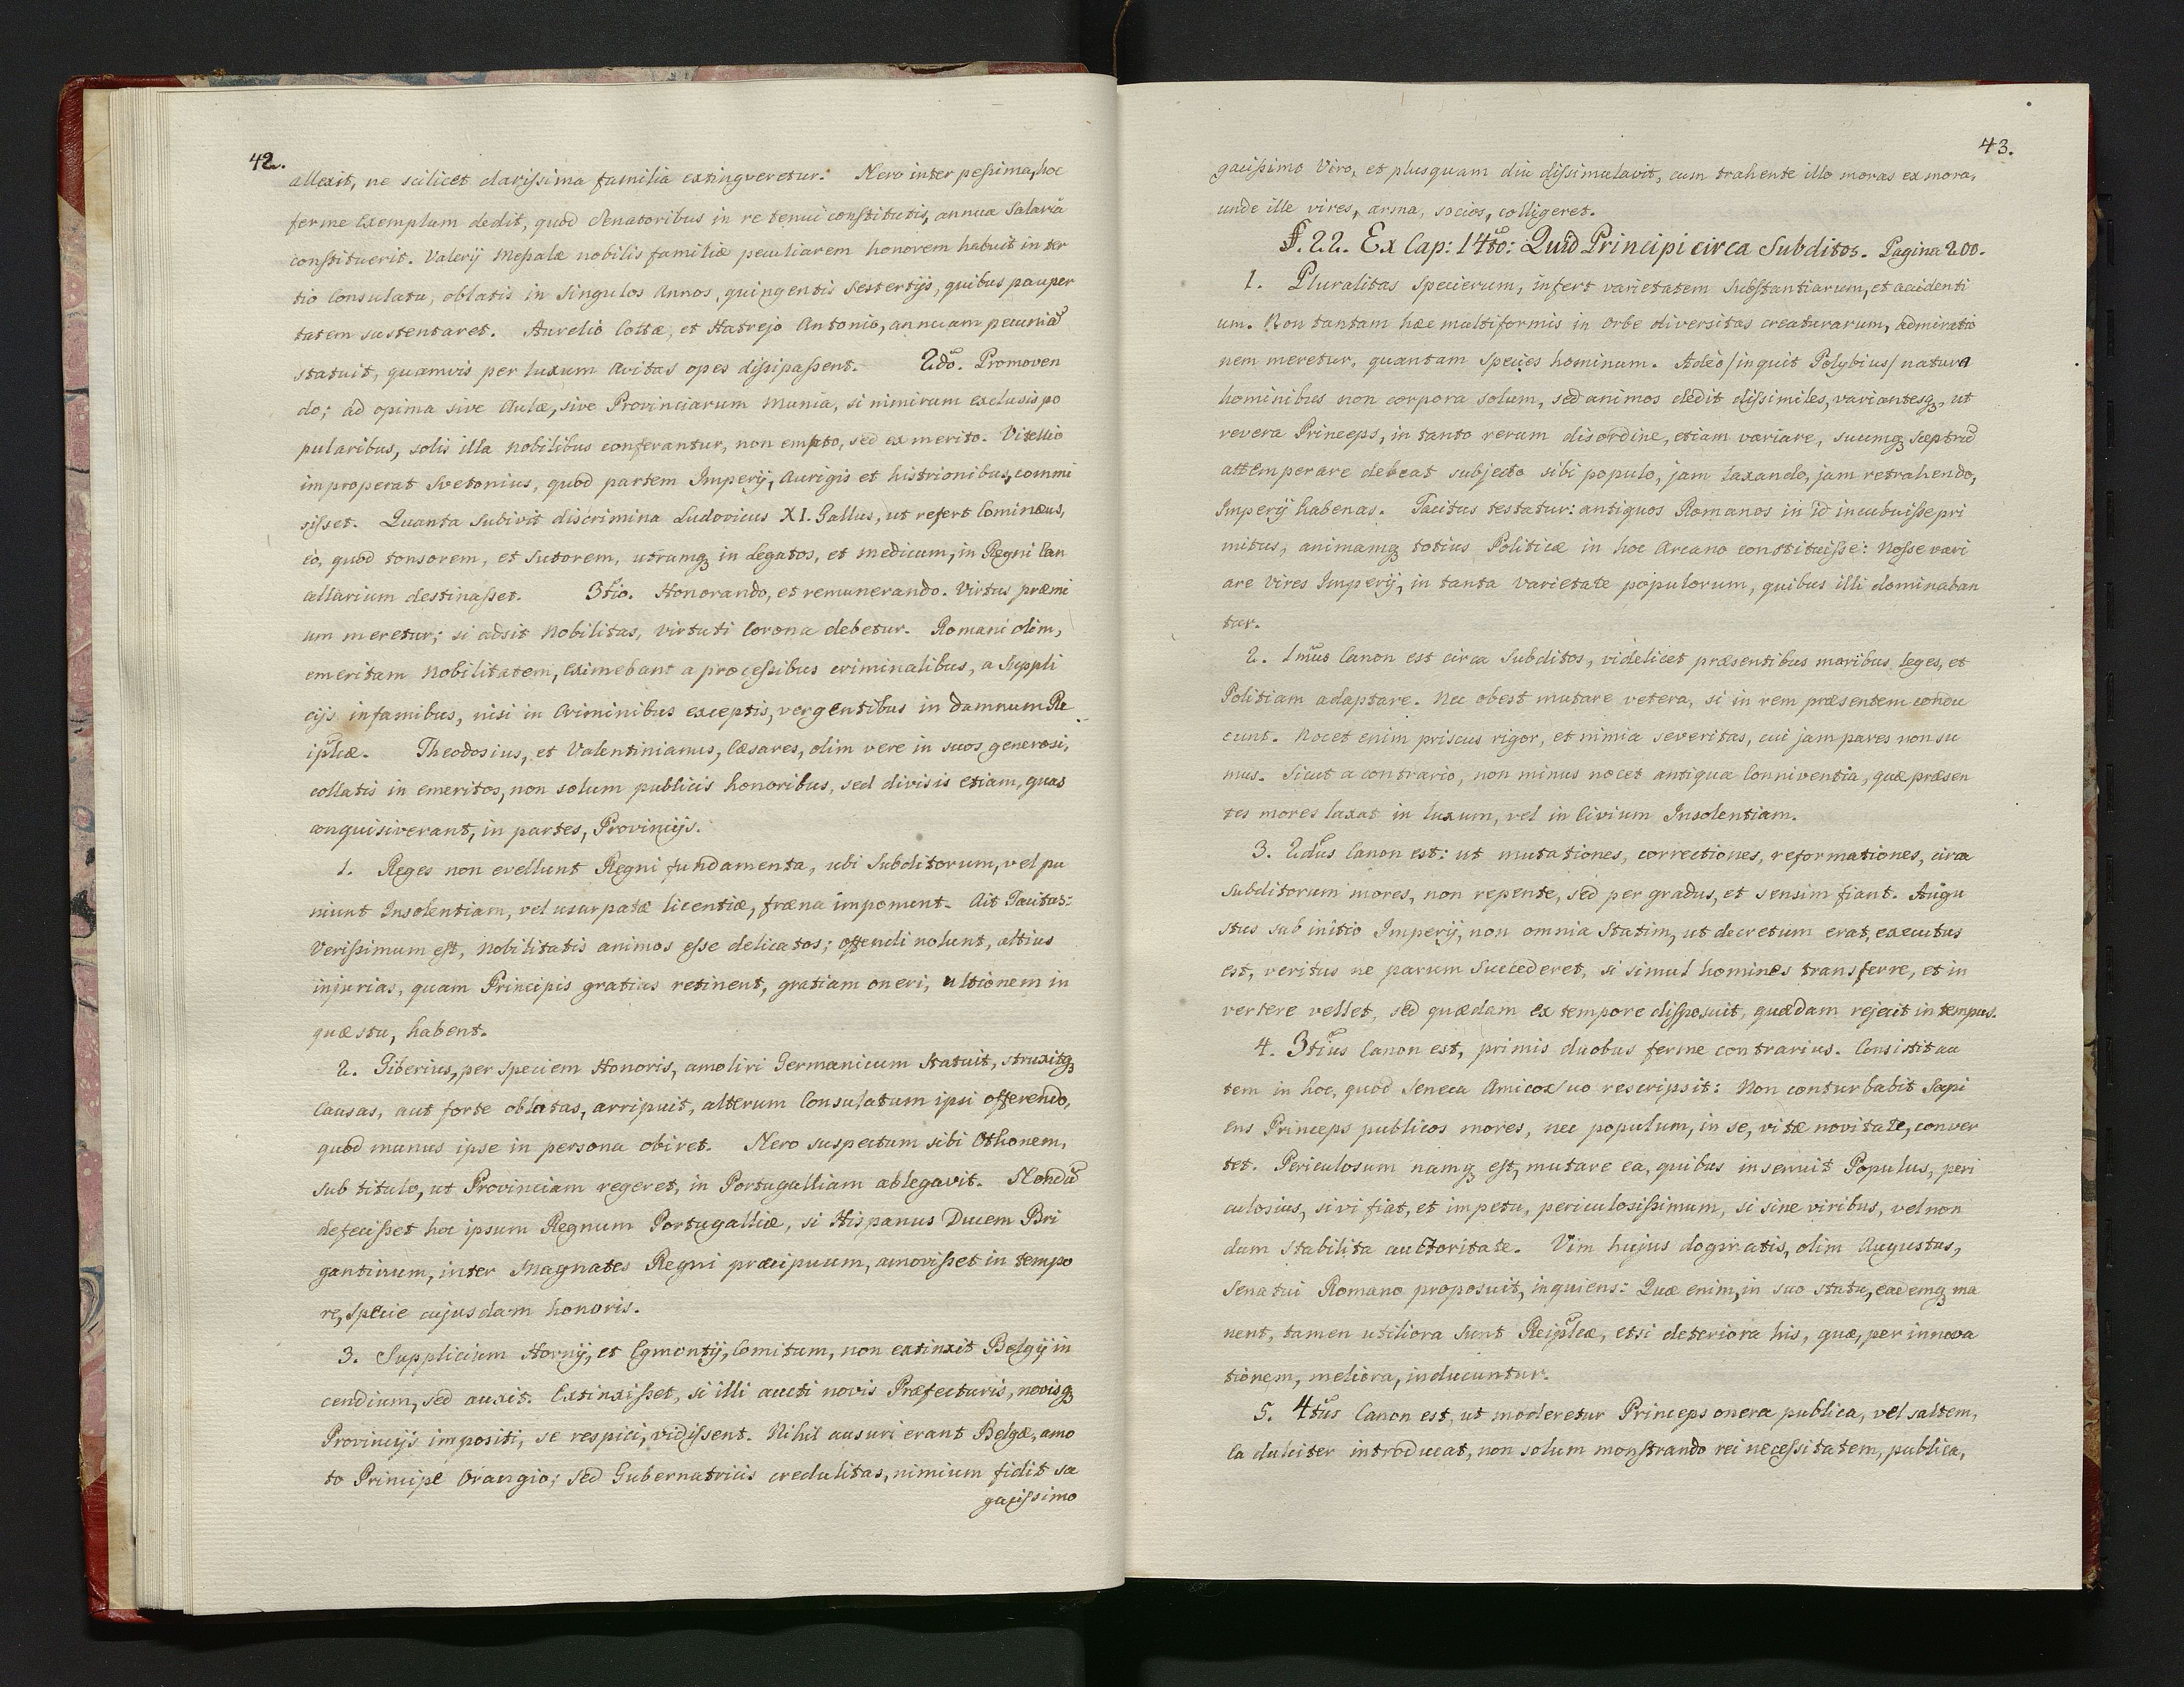 42.
allexit, ne scilicet clarissima familia extingveretur. Nero inter pessima, hoc
ferme Exemplum dedit, quod Senatoribus in re tenui constitutis, annua Salaria
constituerit. Valerij Messalæ nobilis familiæ peculiarem honorem habuit in ter
tio Consulatu, oblatis in Singulos Annos, quingentis Sestertijs, quibus pauper
tatem sustentaret. Aurelio Cottæ, et Hatrejo Antonio, annuam pecuniã
statuit, quamvis per luxum Avitas opes dissipassent. 2do. Promoven
do; ad opima sive Aulæ, sive Provinciarum Munia, si nimirum exclusis po
pularibus, solis illa Nobilibus conferantur, non empto, sed ex merito. Vitellio
improperat Svetonius, quod partem Imperij, Aurigis et histrionibus, commi
sisset. Quanta Subivit discrimina Ludovicus XI. Gallus, ut refert Cominæus,
eò, quod tonsorem, et Sutorem, utramq3 in Legatos, et medicum, in Regni Can
cellarium destinasset. 3tio. Honorando, et remunerando. Virtus præmi
um meretur; si adsit Nobilitas, Virtuti Corona debetur. Romani olim,
emeritam Nobilitatem, Eximebant a processibus criminalibus, a Suppli
cijs infamibus, nisi in Criminibus exceptis, vergentibus in damnum Re
ipbcæ. Theodosius, et Valentinianus, Cæsares, olim vere in suos generosi,
collatis in emeritos, non solum publicis honoribus, sed divisis etiam, quas
conquisiverant, in partes, Provincijs.
1. Reges non evellunt Regni fundamenta, ubi Subditorum, vel pu
niunt Insolentiam, vel usurpatæ licentiæ, fræna imponunt. Ait Tacitus:
Verissimum est, Nobilitatis animos esse delicatos; offendi nolunt, altius
injurias, quam Principis gratias retinent, gratiam oneri, ultionem in
quæstu, habent.
2. Tiberius, per speciem Honoris, amoliri Germanicum Statuit, struxitq3
Causas, aut forte oblatas, arripuit, alterum Consulatum ipsi offerendo,
quod munus ipse in persona obiret. Nero suspectum sibi Othonem,
sub titulo, ut Provinciam regeret, in Portugalliam ablegavit. Nondũ
defecisset hoc ipsum Regnum Portugalliæ, si Hispanus Ducem Bri
gantinum, inter Magnates Regni præcipuum, amovisset in tempo
re, Specie cujusdam honoris.
3. Supplicium Hornij, et Egmontij, Comitum, non extinxit Belgij in
cendium, sed auxit. Extinxisset, si illi aucti novis Præfecturis, novisq3
Provincijs impositi, se respici, vidissent. Nihil ausuri erant Belgæ, amo
to Principe Orangio; sed Gubernatricis credulitas, nimium fidit sa
gacissimo
43.
gacissimo Viro, et plusquam diu dissimulavit, cum trahente illo moras ex mora,
unde ille vires, arma, socios, colligeret.
§. 22. Ex Cap: 14to: Quid Principi circa Subditos. Pagina 200.
1. Pluralitas Specierum, infert varietatem Substantiarum, et accidenti
um. Non tantam hæc multiformis in Orbe diversitas creaturarum, admiratio
nem meretur, quantam Species hominum. Adeò /inquit Polybius/ natura
hominibus non corpora solum, sed animos dedit dissimiles, variantesq3, ut
revera Princeps, in tanto rerum disordine, etiam variare, suumq3 Sceptrũ
attemperare debeat subjecto sibi populo, jam laxando, jam retrahendo,
Imperij habenas. Tacitus testatur: antiquos Romanos in id incubuisse pri
mitus, animamq3 totius Politicæ in hoc Arcano constituisse: Nosse vari
are Vires Imperij, in tanta Varietate populorum, quibus illi dominaban
tur.
2. 1mus Canon est circa Subditos, videlicet præsentibus moribus Leges, et
Politiam adaptare. Nec obest mutare vetera, si in rem præsentem condu
cunt. Nocet enim priscus rigor, et nimia severitas, cui jam pares non su
mus. Sicut a contrario, non minus nocet antiqua Conniventia, quæ præsen
tes mores laxat in luxum, vel in Civium Insolentiam.
3. 2dus Canon est: ut mutationes, correctiones, reformationes, circa
subditorum mores, non repente, sed per gradus, et sensim fiant. Augu
stus sub initio Imperij, non omnia Statim, ut decretum erat, executus
est, veritus ne parum Succederet, si simul homines transferre, et in
vertere vellet, sed quædam Ex tempore disposuit, quædam rejecit in tempus.
4. 3tius Canon est, primis duobus ferme contrarius. Consistit au
tem in hoc, quod Seneca Amico suo rescripsit: Non conturbabit Sapi
ens Princeps publicos mores, nec populum, in se, vitæ novitate, conver
tet. Periculosum namq3 est, mutare ea, quibus insenuit Populus, peri
culosius, si vi fiat, et impetu, periculosissimum, si sine viribus, vel non
dum Stabilita auctoritate. Vim hujus dogmatis, olim Augustus,
Senatui Romano proposuit, inquiens: Quæ enim, in suo statu, eademq3 ma
nent, tamen utiliora sunt Reipbcæ, etsi deteriora his, quæ, per innova
tionem, meliora, inducuntur.
5. 4tus Canon est, ut moderetur Princeps onera publica, vel saltem,
Ea dulciter introducat, non solum monstrando rei necessitatem, publica,